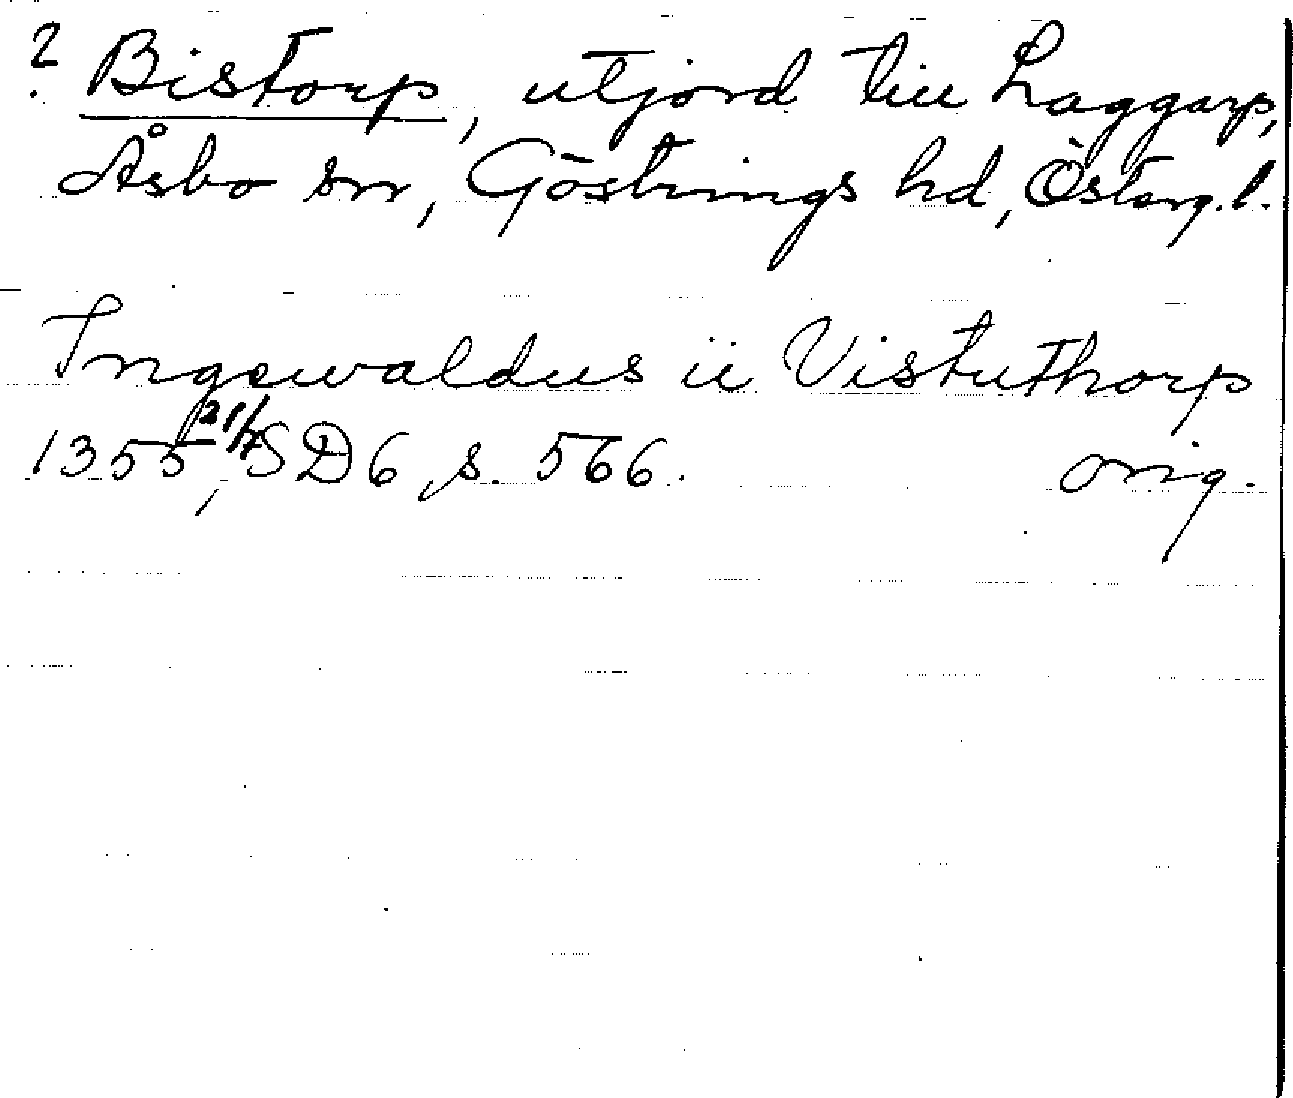 ? Bistorp, utjord till Laggarp,
Åsbo sn, Göstrings hd, Österg. l.
Ingewaldus ii Vistuthorp
1355 21/7, SD 6, s. 566. orig.